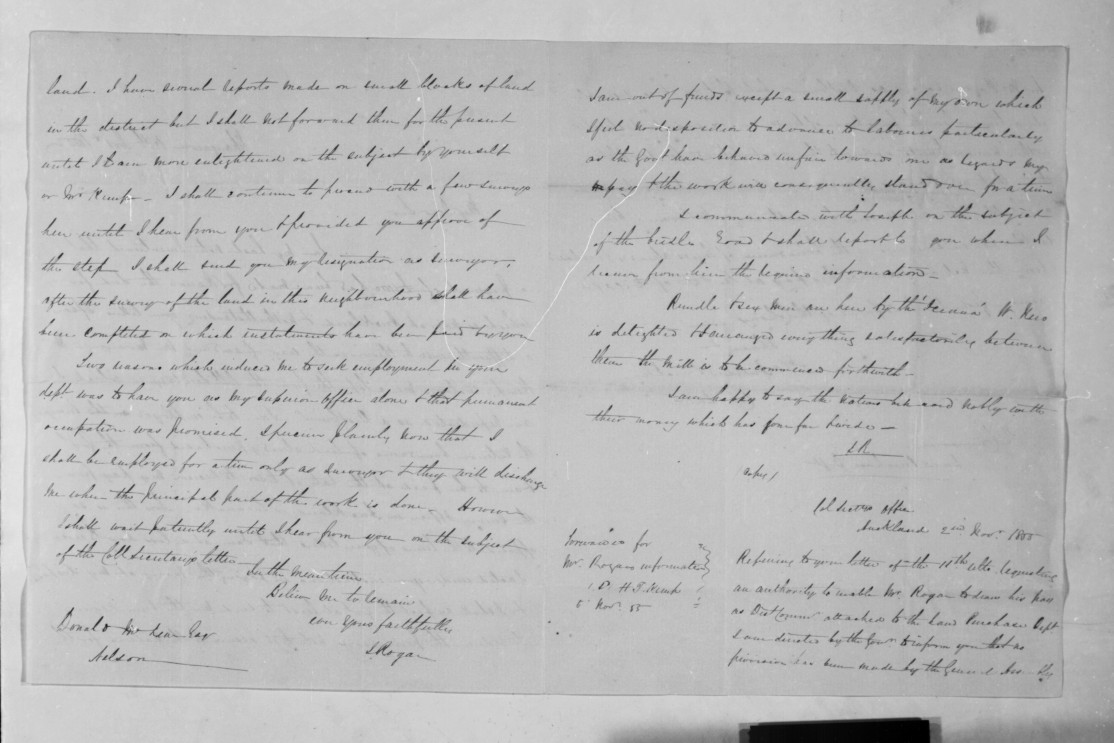 land. I have several reports made on small blocks of land
in the district but I shall not forward them for the present
until I am more enlightened on the subject by yourself
or Mr Kemp - I shall continue to proceed with a few surveys
here until I hear from you & provided you approve of
the step I shall send you my resignation as surveyor,
after the survey of the land in this neighbourhood shall have
been completed on which instalments have been paid
Two reasons which induced me to seek employment in your
dept was to have you as my superior officer alone & that permanent
occupation was promised. I perceive plainly now that I
shall be employed for a time only as surveyor & they will discharge
me when the principal part of the work is done. However
I shall wait patiently until I hear from you on the subject
of the Coll Secretarys letter
In the meantime
Believe me to remain
ever yours faithfully
J Rogan
Donald McLean Esq
Nelson
I am out of funds except a small supply of my own which
I feel no disposition to advance to labourers particularly
as the Govt have behaved unfair towards me as regards my
pay & the work will consequently stand over for a time
I communicate with Joseph on the subject
of the bridle road & shall report to you when I
receive from him the require information -
Rundle & six men are here by the W.
is delighted & arranged everything satisfactorily between
them the mill is to be commenced forthwith -
I am happy to say the natives behaved nobly with
their money which has four far
J R
Copy /
Col Secrys Office
Auckland 2nd Novr. 1855
Referring to your letter of the 11th ulto requesting
an authority to enable Mr. Rogan to draw his pay
as Dist Commr attached to the Land Purchase Dept
I am directed by the Govr to inform you that as
provision has been made by the General Assbly
Forwarded for
Mr. Rogans information
H T Kemp
5 Novr. 55